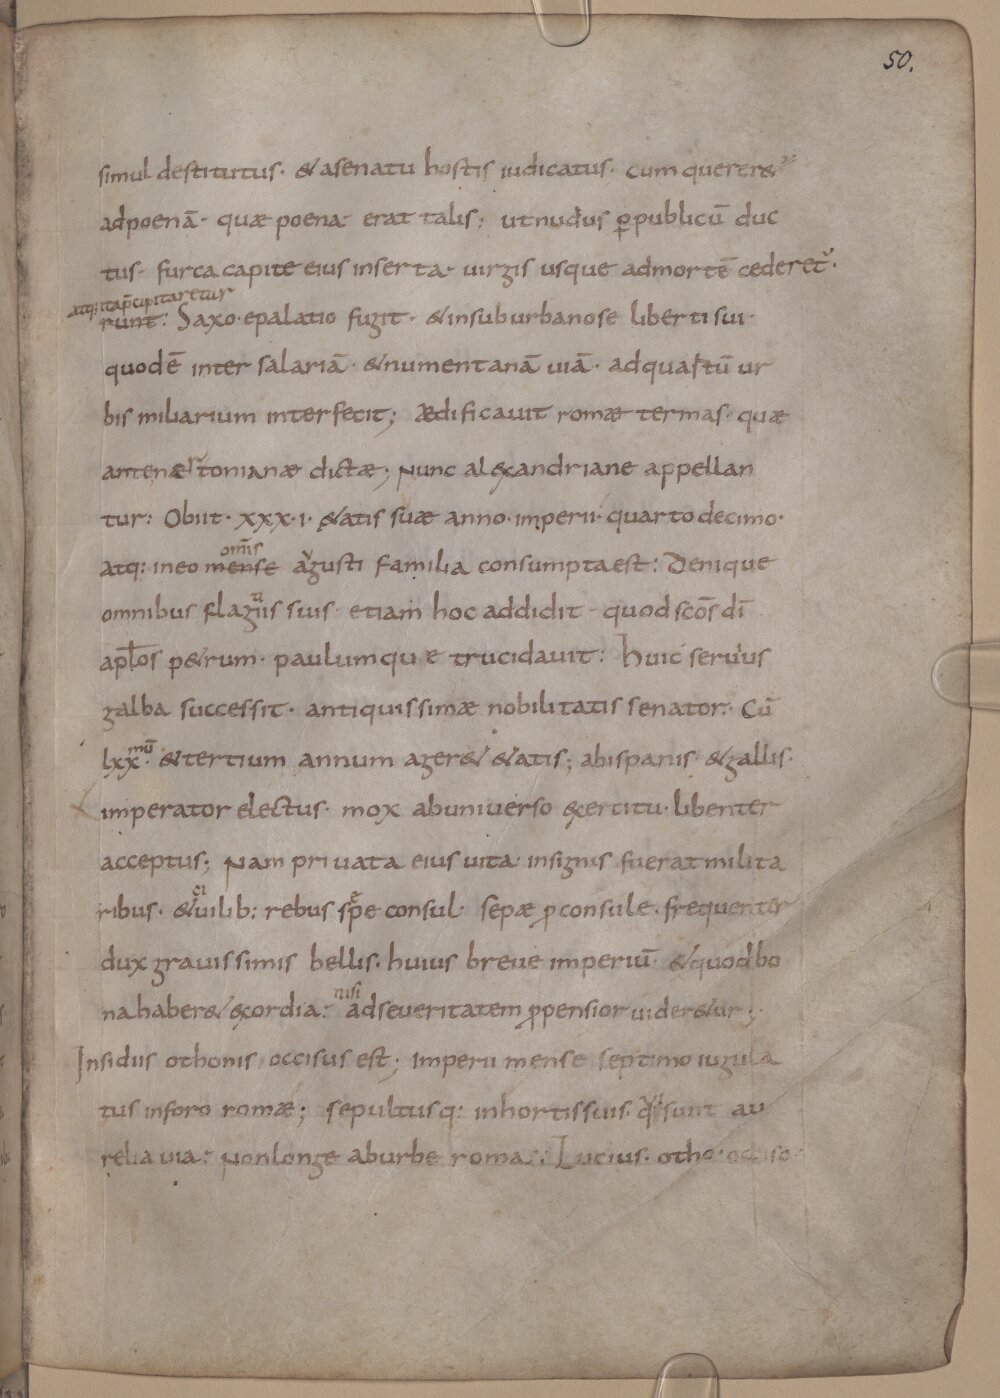 50.
simul destitutus· & asenatu hostis iudicatus· cum querer&ur
adpoenā· quæ poena· erat talis; ut nudus p̲publicū duc
tus· furca capite eius inserta· uirgis usque admortē cederet᷑·
atq: ita p̄cipitaretur
runt: Saxo· epalatio fugit· & insuburbano se liberti sui·
quodē inter salariā· & numentanā uiā· adquartū ur
bis miliarium interfecit; Ædificauit romæ termas· quæ
antenertonianæ dictæ; Nunc al&xandriane appellan
tur: Obiit· xxx·i· &atis suæ anno· imperii· quarto decimo·
omīs
atq: ineo mense augusti familia consumpta est: Denique
omnibus flagitiis suis· etiam hoc addidit· quod scōs dī
apłos p&rum· paulumque trucidauit: Huic seruius
galba successit· antiquissimæ nobilitatis senator· Cū
mū
lxx· & tertium annum ager& &atis; abispaniis· & gallis·
imperator electus· mox abuniuerso &xercitu· libenter
acceptus; Nam priuata eius uita· insignis fuerat milita
ribus· & ciuilib: rebus sæpe consul· sepæ ꝓconsule· frequenter
dux grauissimis bellis· huius breue imperiū· & quod bo
nisi
na haber& &xordia: adseueritatem ꝓpensior uider&ur;
Insidiis othonis occisus est; imperii mense septimo iugula
tus inforo romæ; sepultusq: inhortis suis· q̄ sunt au
relia uia: Nonlonge aburbe roma: Lucius· otho· occiso·